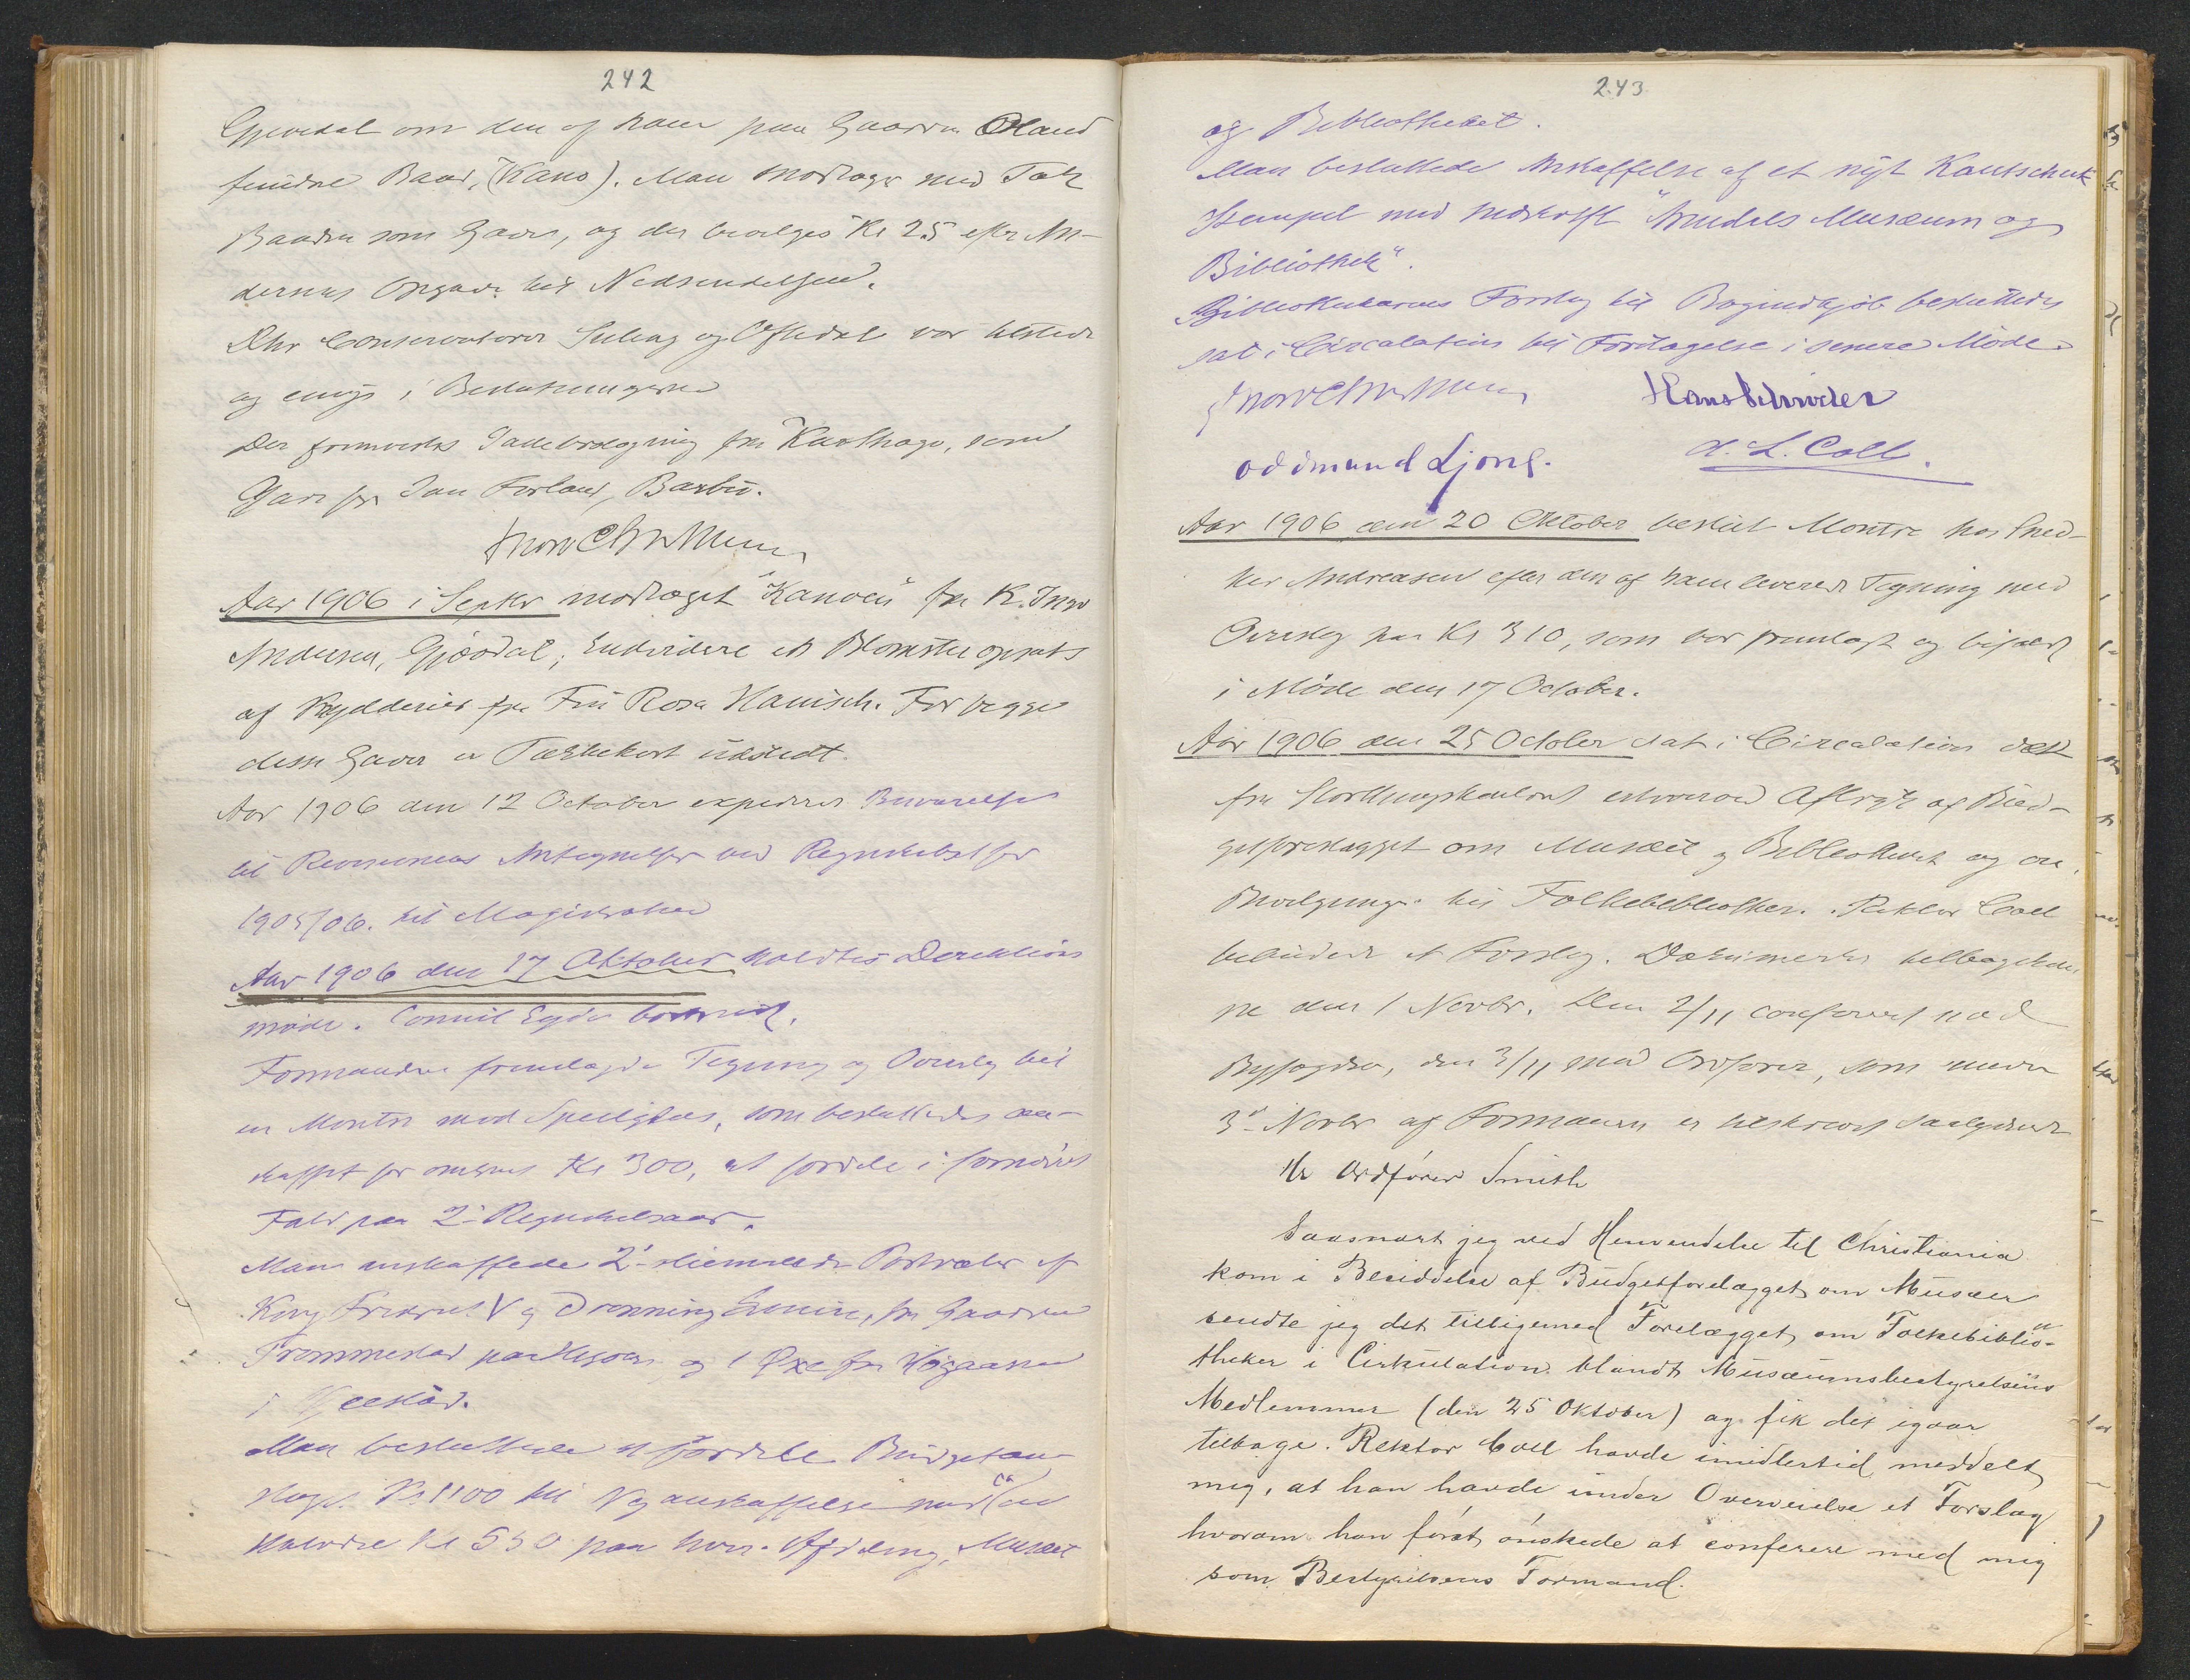 242
Gjøvdal om den af ham paa Gaarden Øland
fundne Baad, (Kano). Man modtager med Tak
Baaden som Gave, og der bevilges Kr 25 efter An-
dersens Opgave til Nedsendelsen.
DHr Conservatorer Suleng og Oftedal var tilstede
og enige i Beslutningerne
Der fremvistes fra Karthago, som
Gave fra Jan Forland, Barbu.
Aar 1906 i Septbr modtaget "Kanoen" fra K.
Andersen, Gjøvdal, Endvidere et Blomsteropsats
af Krydderier fra Fru Rosa Hanisch. For begge
disse Gaver er Takkekort udstedt.
Aar 1906 den 12 October expederet Besvarelse
til Revisionens Antegnelser ved Regnskabet for
1905/06. til Magistraten
Aar 1906 den 17 Oktober holdtes Direktions
møde. Consul Eyde bortreist.
Formanden fremlagde Tegning og Overslag til
en Montre med Speilglas, som besluttedes an-
skaffet for omkring Kr 300, at fordele i fornødent
Fald paa 2 Regnskabsaar.
Man anskaffede 2 Portræter af
Kong Fredrik V og Dronning Lovise, fra Gaarden
Trommestad paa Hisøen og 1 Øxe fra
i
Man besluttede at fordele Budgetan-
slaget Kr 1100 til Nyanskaffelse med ca
Halvdel Kr 550 paa hver Afdeling, Musæet
243
og Bibliotheket.
Man besluttede Anskaffelse af et nyt Kautschuk
Stempel med Indskrift "Arendals Musæum og
Bibliothek".
Bibliothekarens Forslag til Bogindkjøb besluttedes
sat i Circulation til Foretagelse i senere Møde.
Hans Schrøder
Oddmund Ljone.
A. L. Coll.
Aar 1906 den 20 Oktober bestilt Montre hos Sned-
ker Andreasen efter den af ham leverede Tegning med
Overslag paa Kr 310, som var fremlagt og bifaldt
i Møde den 17 October.
Aar 1906 den 25 October sat i Circulation
fra Storthingskontoret erhvervet Aftryk af Bud-
getforelægget om Musæet og Bibliotheket og om
Bevilgning til Folkebibliotheker. Rektor Coll
bebudede et Forslag. Dokumentet tilbagekom
ne den 1 Novbr. Den 2/11 confereret med
Byfogden, den 3/11 med Ordfører, som under
3 Novbr af Formanden er tilskrevet saalydende
Hr Ordfører Smith
Saasnart jeg ved Henvendelse til Christiania
kom i Besiddelse af Budgetforelægget om Musæer
sendte jeg det tilligemed Forelægget om Folkebiblio-
theker i Cirkulation blandt Musæumsbestyrelsens
Medlemmer (den 25 Oktober) og fik det igaar
tilbage. Rektor Coll havde imidlertid meddelt
mig, at han havde under Overveielse et Forslag
hvorom han først ønskede at conferere med mig
som Bestyrelsens Formand.